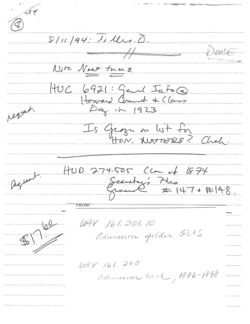 8
8/11/94: To Mrs. O.
DONE
Note Next time
HUC 6921: Genl Info
Harvard Council & Class
Day in 1923
request.
Is George on list for
HON. MATTERS? Check
HUD 274.505 Class of 1874
Secretary's Files
#147 + #148.
$17.60
UAV 161.201.10
Admission folder GSAS
UAV 161.200
Admission book, 1886-1898